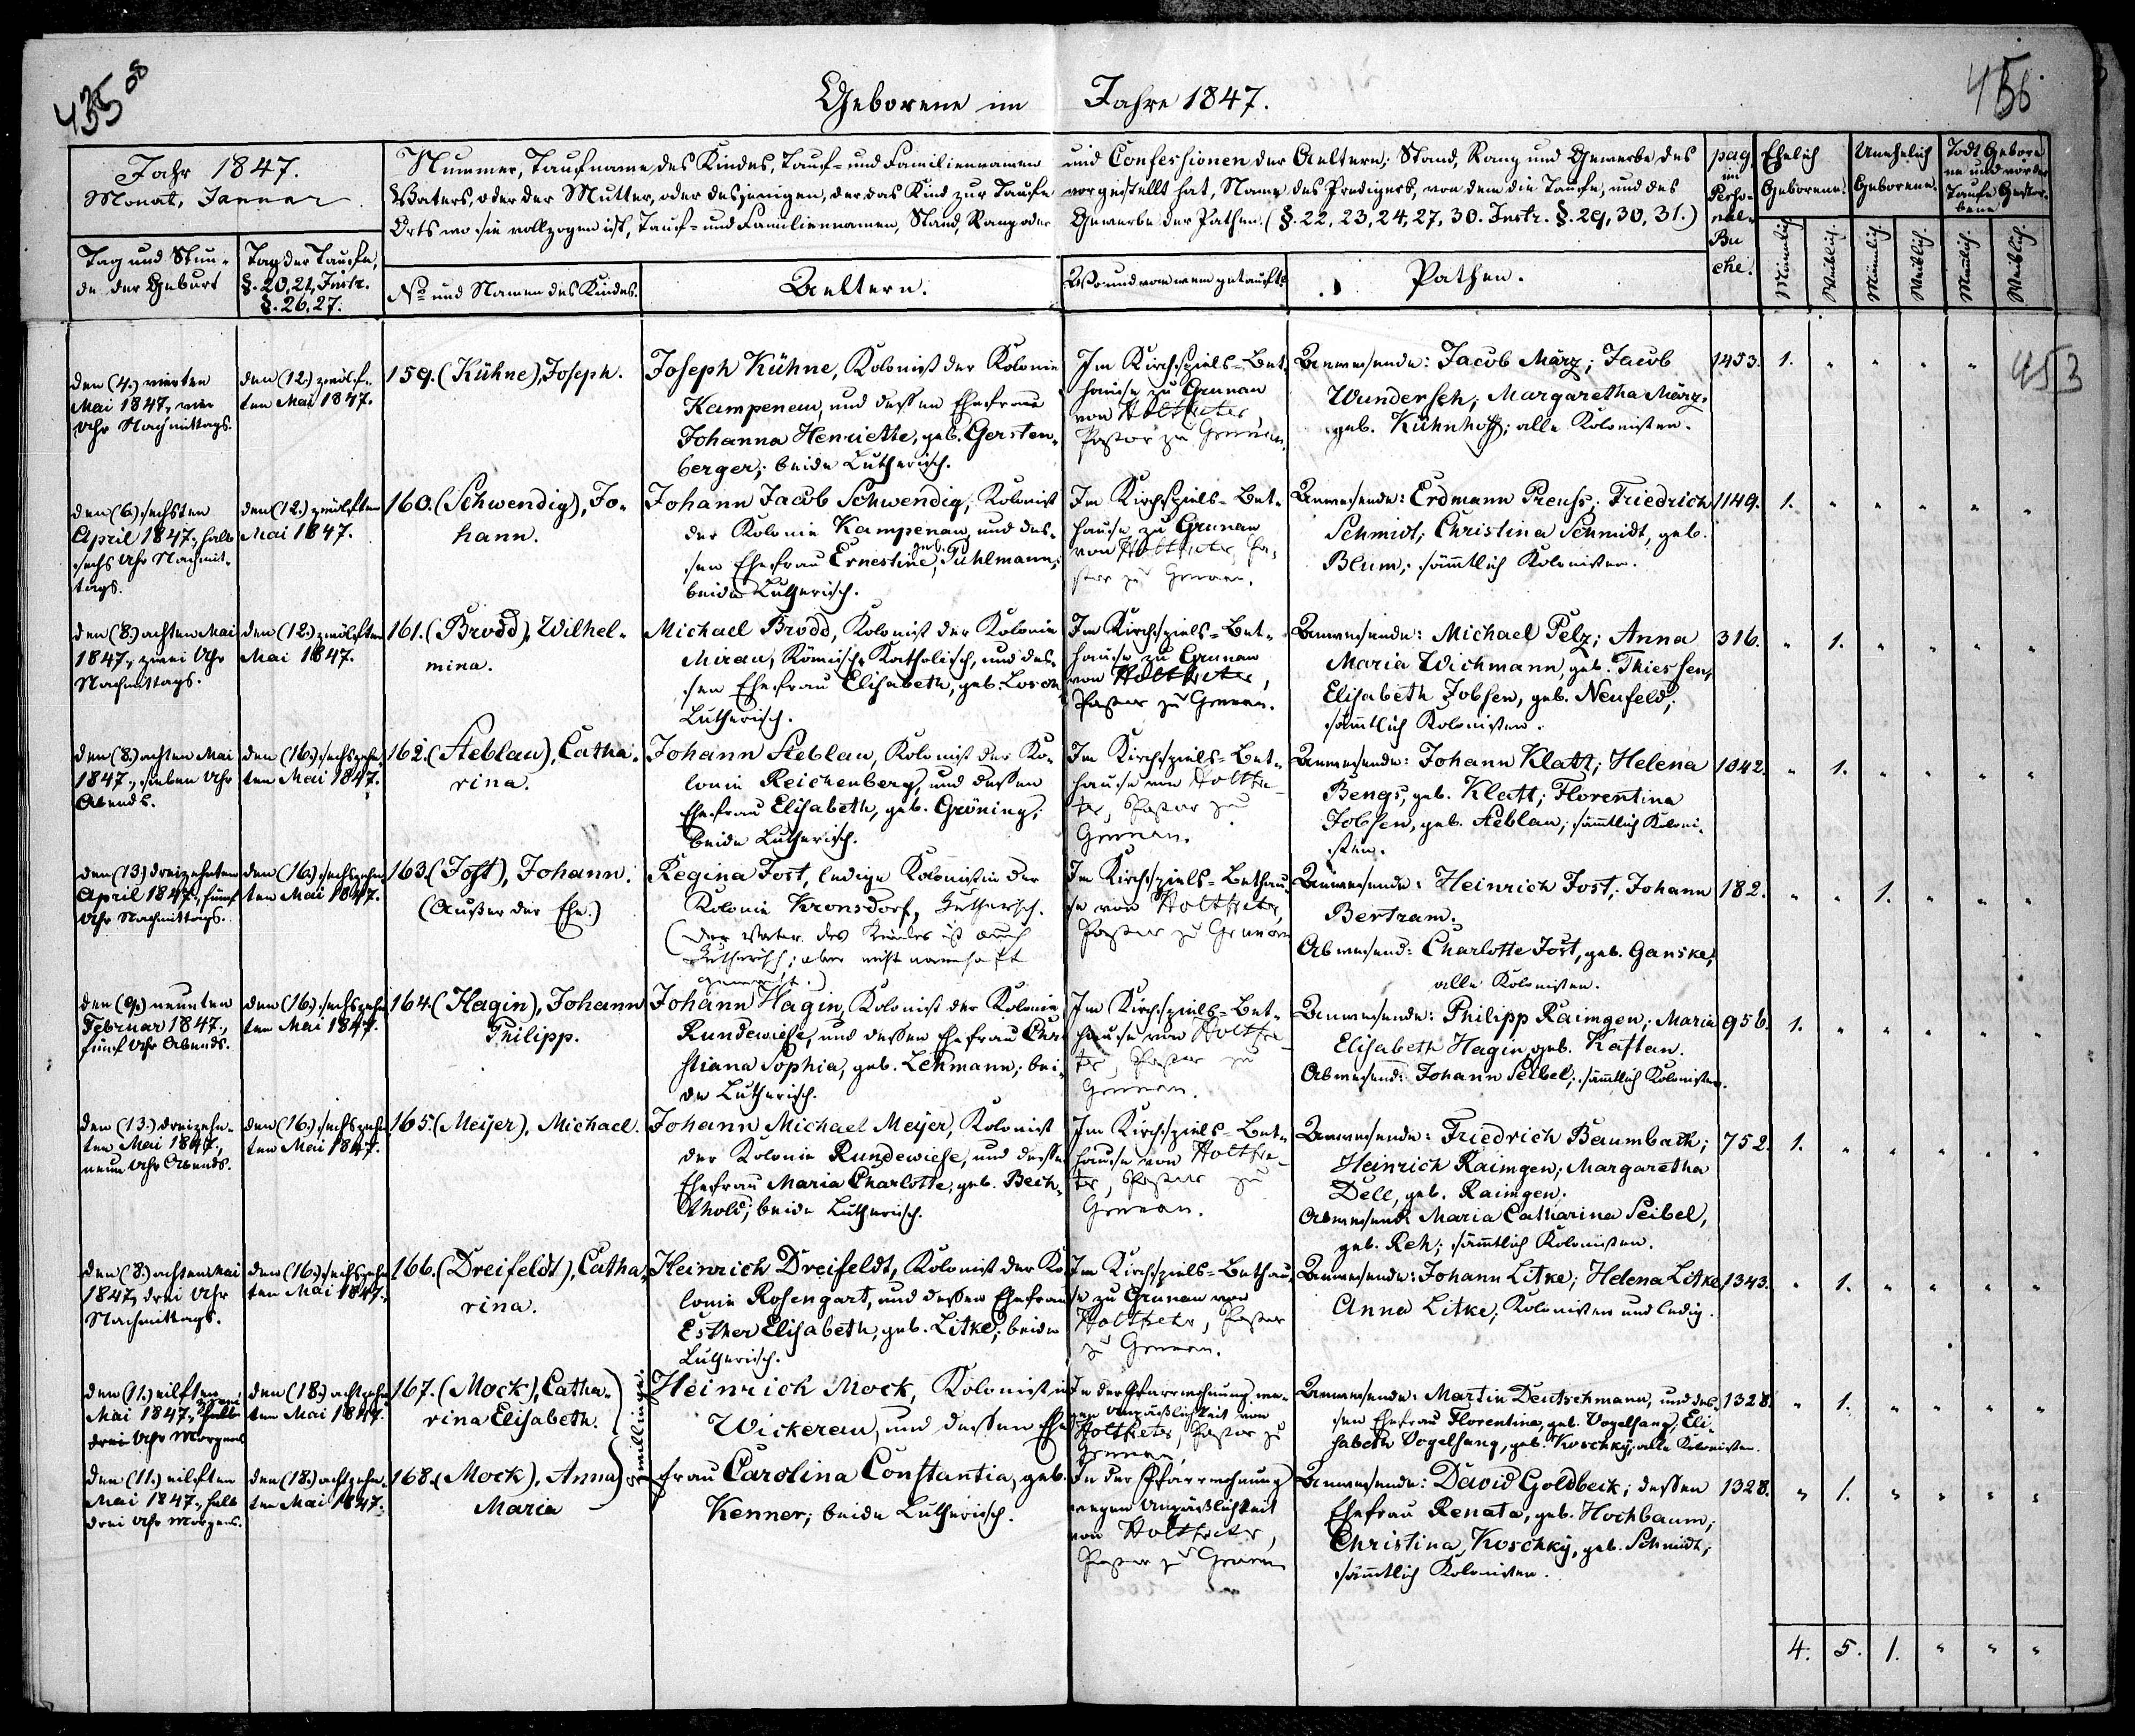 435
456
Geborene im Jahre 1847.
Jahr 1847.
Monat, Januar
Tag und Stun-
de der Geburt
Tag der Taufe,
§. 20, 21, Instr.
§. 26, 27.
Nummer, Taufname des Kindes, Tauf- und Familiennamen und Confessionen der Aeltern; Stand, Rang und Gewerbe des
Vaters, oder der Mutter, oder desjenigen, der das Kind zur Taufe vorgestellt hat, Name des Predigers, von dem die Taufe, und des
Orts wo sie vollzogen ist, Tauf- und Familiennamen, Stand, Rang oder Gewerbe der Pathen. (§. 22, 23, 24, 27, 30. Instr. §. 29, 30, 31.)
No und Namen des Kindes.
Aeltern.
Wo und von wem getauft?
Pathen.
pag.
im
Perso-
nal-
Bu
che.
Ehelich
Geborene.
Unehelich
Geborene.
Todt Gebore
ne und vor der
Taufe Gestor-
bene
Männlich.
Weiblich.
Männlich.
Weiblich.
Männlich.
Weiblich.
453
den (4.) vierten
Mai 1847, vier
Uhr Nachmittags.
den (12.) zwölf-
ten Mai 1847.
159. (Kühne), Joseph.
Joseph Kühne, Kolonist der Kolonie
Kampenau, und dessen Ehefrau
Johanna Henriette, geb. Gersten-
berger; beide Lutherisch.
Im Kirchspiels-Bet-
hause zu Grunau
von Holtfreter,
Pastor zu Grunau.
Anwesende: Jacob März; Jacob
Wundersch; Margaretha März,
geb. Kühnhoff; alle Kolonisten.
1453. 1. " " " "
den (6.) sechsten
April 1847, halb
sechs Uhr Nachmit-
tags.
den (12.) zwölften
Mai 1847.
160. (Schwendig), Jo-
hann.
Johann Jacob Schwendig, Kolonist
der Kolonie Kampenau, und des-
sen Ehefrau Ernestine, geb. Tuhlmann;
beide Lutherisch.
Im Kirchspiels-Bet-
hause zu Grunau
von Holtfreter, Pa-
stor zu Grunau.
Anwesende: Erdmann Preuss; Friedrich
Schmidt; Christina Schmidt, geb.
Blum; sämtlich Kolonisten.
1149. 1. " " " " "
den (8.) achten Mai
1847, zwei Uhr
Nachmittags.
den (12.) zwölften
Mai 1847.
161. (Brodd), Wilhel-
mina.
Michael Brodd, Kolonist der Kolonie
Mirau, Römisch-Katholisch, und des-
sen Ehefrau Elisabeth, geb. Losch,
Lutherisch.
Im Kirchspiels-Bet-
hause zu Grunau
von Holtfreter,
Pastor zu Grunau.
Anwesende: Michael Pelz; Anna
Maria Wichmann, geb. Thiessen,
Elisabeth Jobsen, geb. Neufeld;
sämtlich Kolonisten.
316. " 1. " " " "
den (8.) achten Mai
1847, sieben Uhr
Abends.
den (16.) sechszehn-
ten Mai 1847.
162. (Steblau), Catha-
rina.
Johann Steblau, Kolonist der Ko-
lonie Reichenberg, und dessen
Ehefrau Elisabeth, geb. Gröning;
beide Lutherisch.
Im Kirchspiels-Bet-
hause von Holtfre-
ter, Pastor zu
Grunau.
Anwesende: Johann Klatt; Helena
Bengs, geb. Klatt; Florentina
Jobsen, geb. Steblau; sämtlich Koloni-
sten.
1042. " 1. " " " "
den (13.) dreizehnten
April 1847, fünf
Uhr Nachmittags.
den (16.) sechszehn-
ten Mai 1847.
163. (Jost), Johann.
(Außer der Ehe.)
Regina Jost, ledige Kolonistin der
Kolonie Kronsdorf, Lutherisch.
(Der Vater des Kindes ist auch
Lutherisch; aber nicht namhaft
gemacht.)
Im Kirchspiels-Bethau-
se von Holtfreter,
Pastor zu Grunau
Anwesende: Heinrich Jost; Johann
Bertram.
Abwesend: Charlotte Jost, geb. Ganske;
alle Kolonisten.
182. " " 1. " " "
den (9.) neunten
Februar 1847,
fünf Uhr Abends.
den (16.) sechszehn-
ten Mai 1847.
164. (Hagin), Johann
Philipp.
Johann Hagin, Kolonist der Kolonie
Rundewiese, und dessen Ehefrau Chri-
stiana Sophia, geb. Lehmann; bei-
de Lutherisch.
Im Kirchspiels-Bet-
hause von Holtfre-
ter, Pastor zu
Grunau.
Anwesende: Philipp Raimgen; Maria
Elisabeth Hagin, geb. Kaftan.
Abwesend: Johann Seibel; sämtlich Kolonisten.
956. 1. " " " " "
den (13.) dreizehn-
ten Mai 1847,
neun Uhr Abends.
den (16.) sechszehn-
ten Mai 1847.
165. (Meijer), Michael.
Johann Michael Meijer, Kolonist
der Kolonie Rundewiese, und dessen
Ehefrau Maria Charlotte, geb. Bech-
thold; beide Lutherisch.
Im Kirchspiels-Bet-
hause von Holtfre-
ter, Pastor zu
Grunau.
Anwesende: Friedrich Baumbach;
Heinrich Raimgen; Margaretha
Dell, geb. Raimgen.
Abwesend: Maria Catharina Seibel,
geb. Reh; sämtlich Kolonisten.
752. 1. " " " " "
den (8.) achten Mai
1847, drei Uhr
Nachmittags.
den (16.) sechszehn-
ten Mai 1847.
166. (Dreifeldt), Catha-
rina.
Heinrich Dreifeldt, Kolonist der Ko-
lonie Rosengart, und dessen Ehefrau
Esther Elisabeth, geb. Litke; beide
Lutherisch.
Im Kirchspiels-Bethau-
se zu Grunau von
Holtfreter, Pastor
zu Grunau.
Anwesende: Johann Litke; Helena Litke
Anna Litke; Kolonisten und ledig.
1343. " 1. " " " "
den (11.) eilften
Mai 1847, halb
drei Uhr Morgens
den (18.) achtzehn-
ten Mai 1847.
167. (Mock), Catha-
rina Elisabeth.
Zwillinge.
Heinrich Mock, Kolonist in
Wickerau, und dessen Ehe
In der Pfarrwohnung we-
gen Unpäßlichkeit von
Holtfreter, Pastor zu
Grunau.
Anwesende: Martin Deutschmann, und des-
sen Ehefrau Florentina, geb. Vogelsang, Eli-
sabeth Vogelsang, geb. Koschky; alle Kolonisten.
1328. " 1. " " " "
den (11.) eilften
Mai 1847, halb
drei Uhr Morgens.
den (18.) achtzehn-
ten Mai 1847.
168. (Mock), Anna
Maria
frau Carolina Constantia, geb.
Kenner; beide Lutherisch.
In der Pfarrwohnung
wegen Unpäßlichkeit
von Holtfreter,
Pastor zu Grunau
Anwesende: David Goldbeck; dessen
Ehefrau Renata, geb. Hochbaum;
Christina Koschky, geb. Schmidt;
sämtlich Kolonisten.
1328. " 1. " " " "
4. 5. 1. " " "